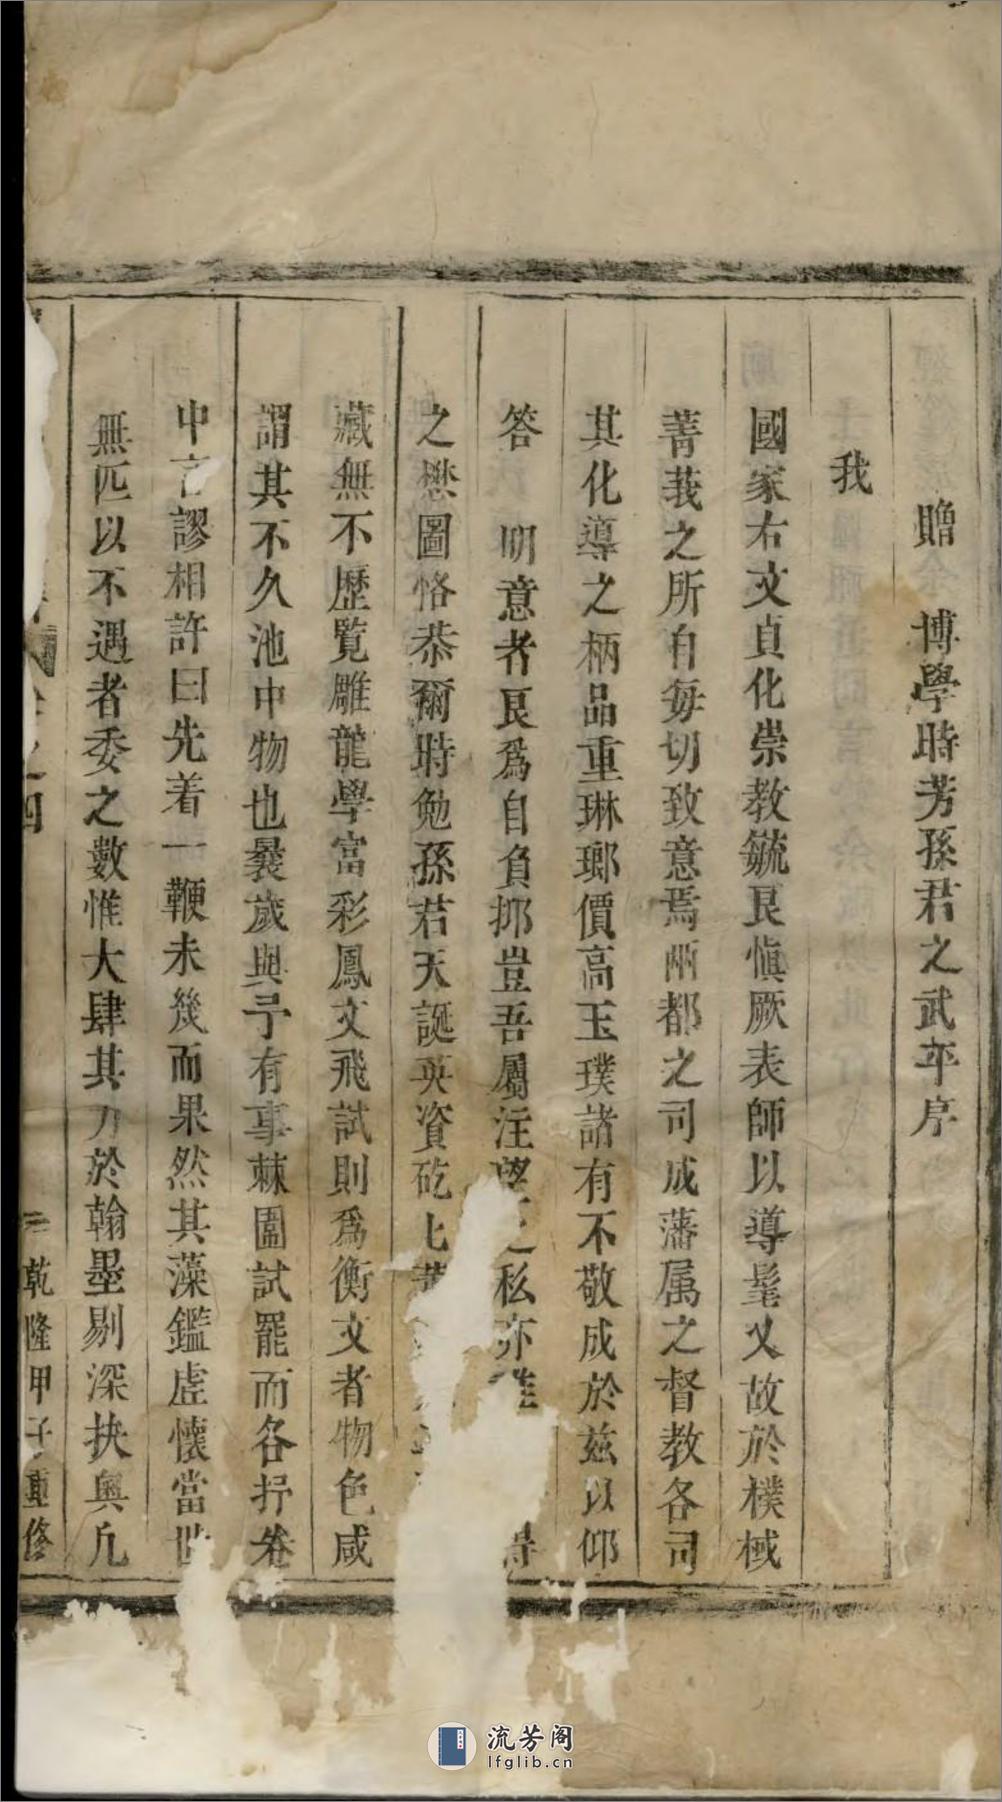 贈　博學時芳孫君之武平序
我
國家右文貞化崇教毓良愼厥表師以導髦乂故於樸棫
菁莪之所自每切致意焉兩都之司成藩属之督教各司
其化導之柄品重琳瑯價高玉璞諸有不敬成於兹以仰
答　明意者良爲自負抑豈吾屬注望之私亦
之懋圖恪恭爾時勉孫君天誕英資矻
藏無不歷覽雕龍學富彩鳳文飛試則爲衡文者物色咸
謂其不久池中物也曩歲與予有事棘圍試罷而各抒卷
中言謬相許曰先着一鞭未幾而果然其藻鑑虛懷當世
無匹以不遇者委之數惟大肆其力於翰墨剔深抉奥凡
之四
乾隆甲子重修
流芳阁
lfglib.cn